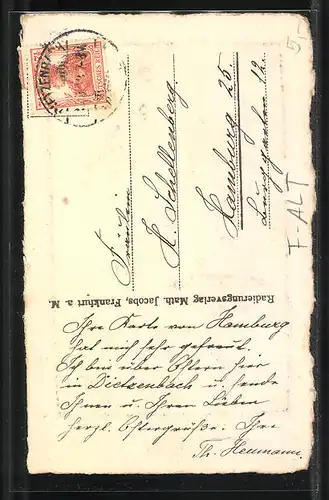 Fräulein
H. Schellenberg.
Hamburg 25.
12.
Radierungsverlag Math. Jacobs, Frankfurt a. M.
Ihre Karte von Hamburg
hat mich sehr gefreut.
Ich bin über Ostern hier
in Dietzenbach u. sende
Ihnen u. Ihren Lieben
herzl. Ostergrüße. Ihre
Th. Heumann.
DEUTSCHES REICH
5-
F-ALT